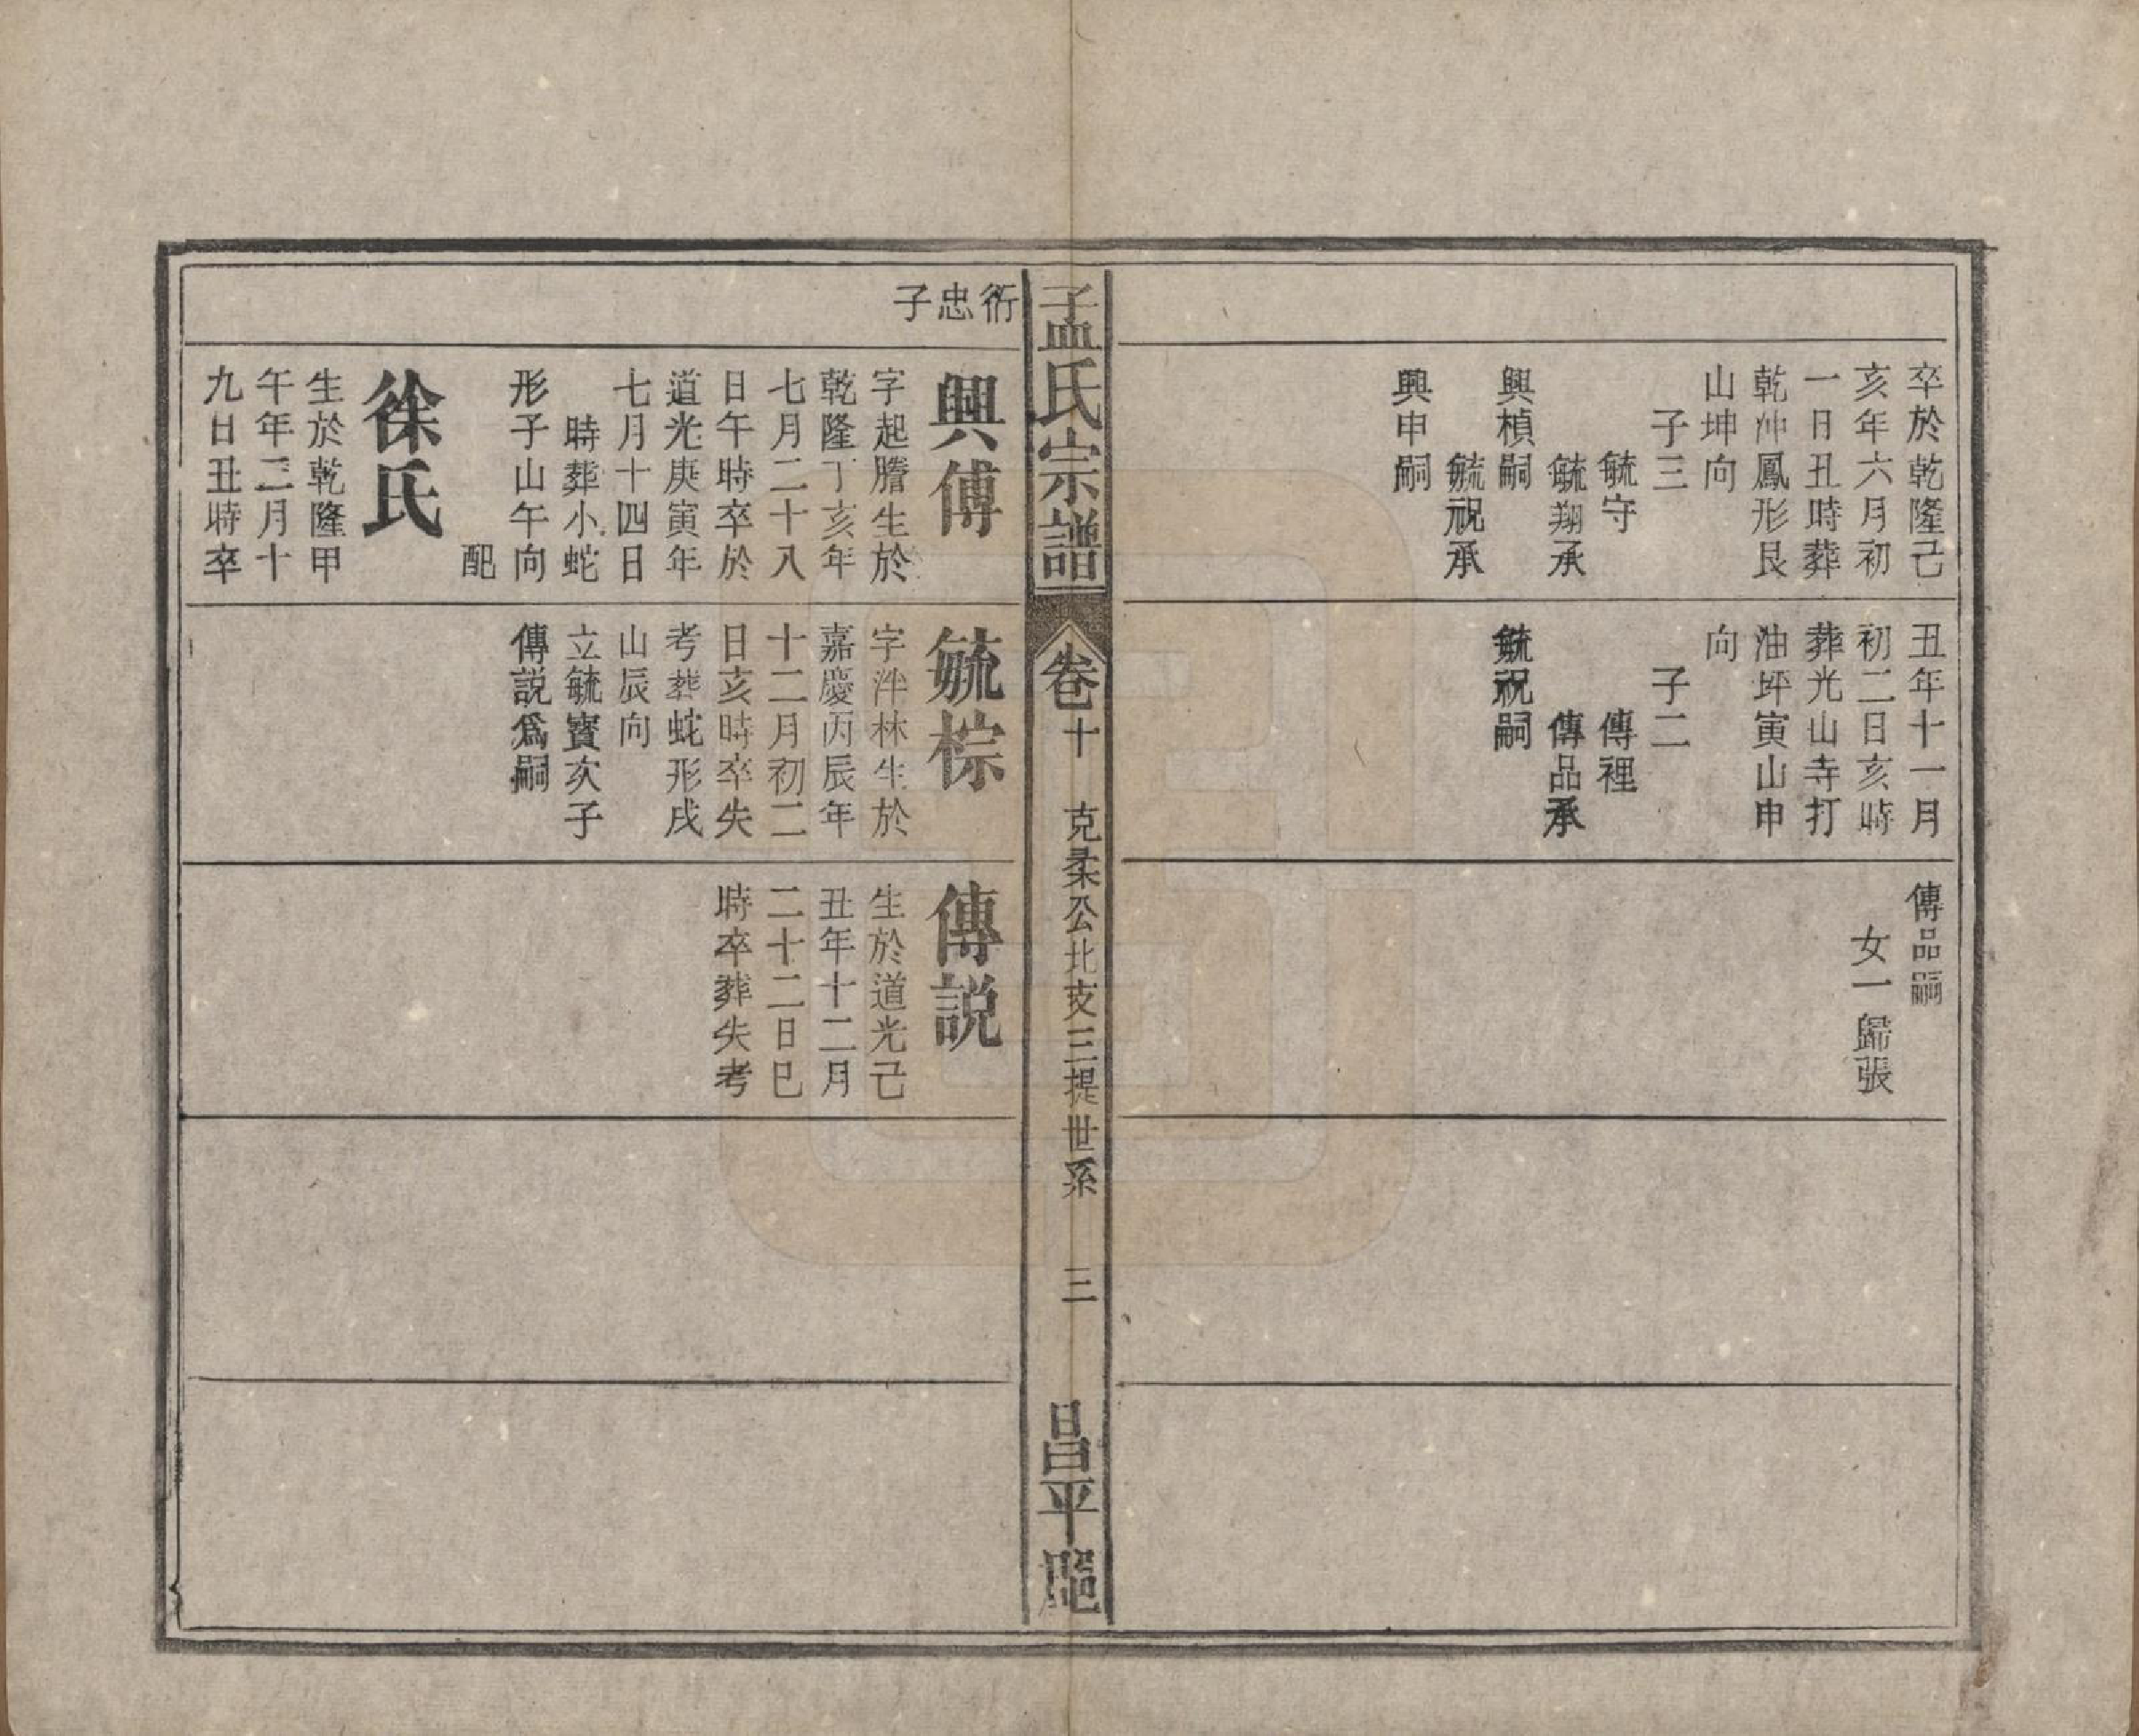 卒於乾隆己
亥年六月初
一日丑時葬
乾冲鳳形艮
山坤向
子三
毓守
毓翔承
興楨嗣
毓祝承
興申嗣
丑年十一月
初二日亥時
葬光山寺打
油坪寅山申
向
子二
傳裡
傳品承
毓祝嗣
傳品嗣
女一歸張
孟氏宗譜
卷十
克柔公北支三提世系
三
昌平
衍忠子
興傳
字起謄生於
乾隆丁亥年
七月二十八
日午時卒於
道光庚寅年
七月十四日
時葬小蛇
形子山午向
配
徐氏
生於乾隆甲
午年三月十
九日丑時卒
毓棕
字泮林生於
嘉慶丙辰年
十二月初二
日亥時卒失
考葬蛇形戌
山辰向
立毓寳次子
傳説爲嗣
傳説
生於道光己
丑年十二月
二十二日巳
時卒葬失考